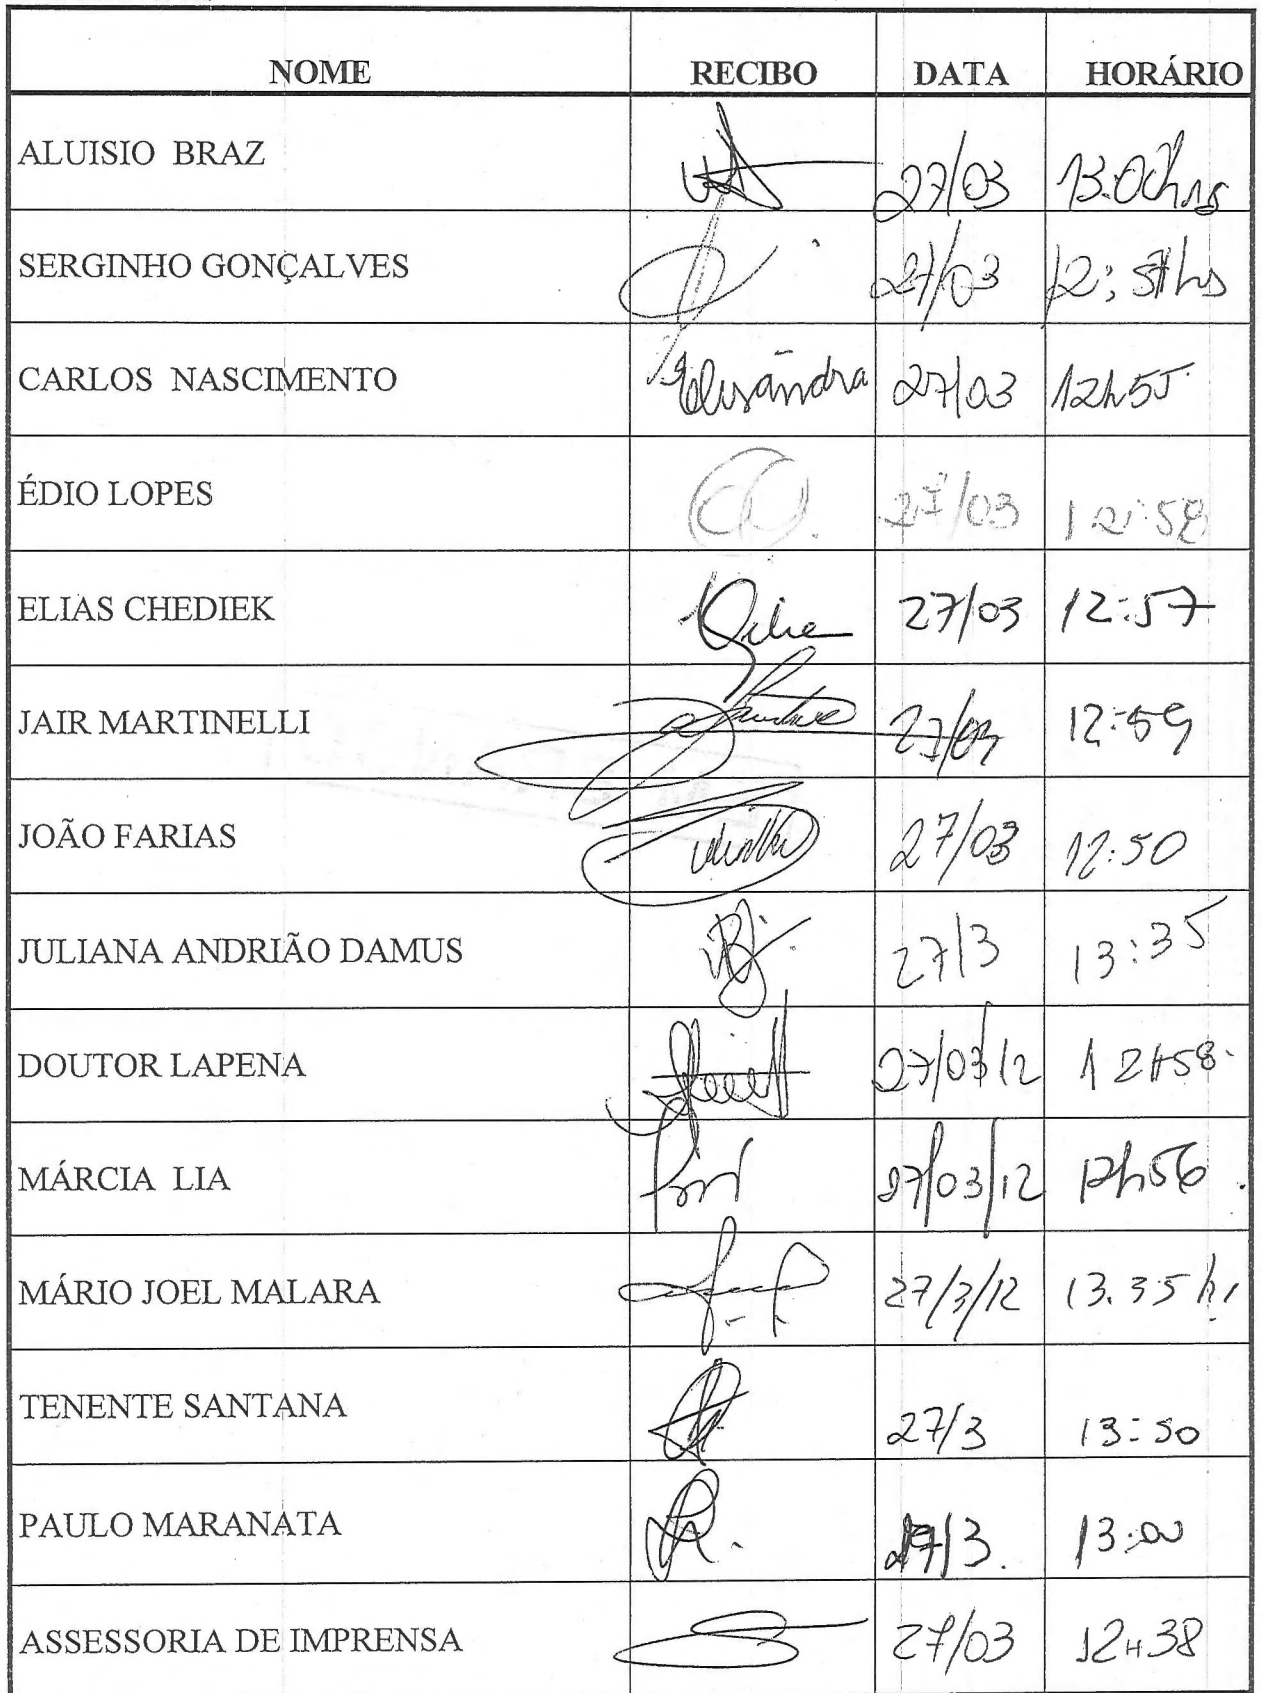 NOME RECIBO DATA HORÁRIO
ALUISIO BRAZ 27/03 13:00hrs
SERGINHO GONÇALVES 27/03 12:57hs
CARLOS NASCIMENTO Elisandra 27/03 12h55
ÉDIO LOPES 27/03 12:58
ELIAS CHEDIEK 27/03 12:57
JAIR MARTINELLI 27/03 12:59
JOÃO FARIAS 27/03 12:50
JULIANA ANDRIÃO DAMUS 27/3 13:35
DOUTOR LAPENA 27/03/12 12H58
MÁRCIA LIA 27/03/12 12h56
MÁRIO JOEL MALARA 27/3/12 13.35 hs
TENENTE SANTANA 27/3 13:50
PAULO MARANATA 27/3. 13:00
ASSESSORIA DE IMPRENSA 27/03 12H38